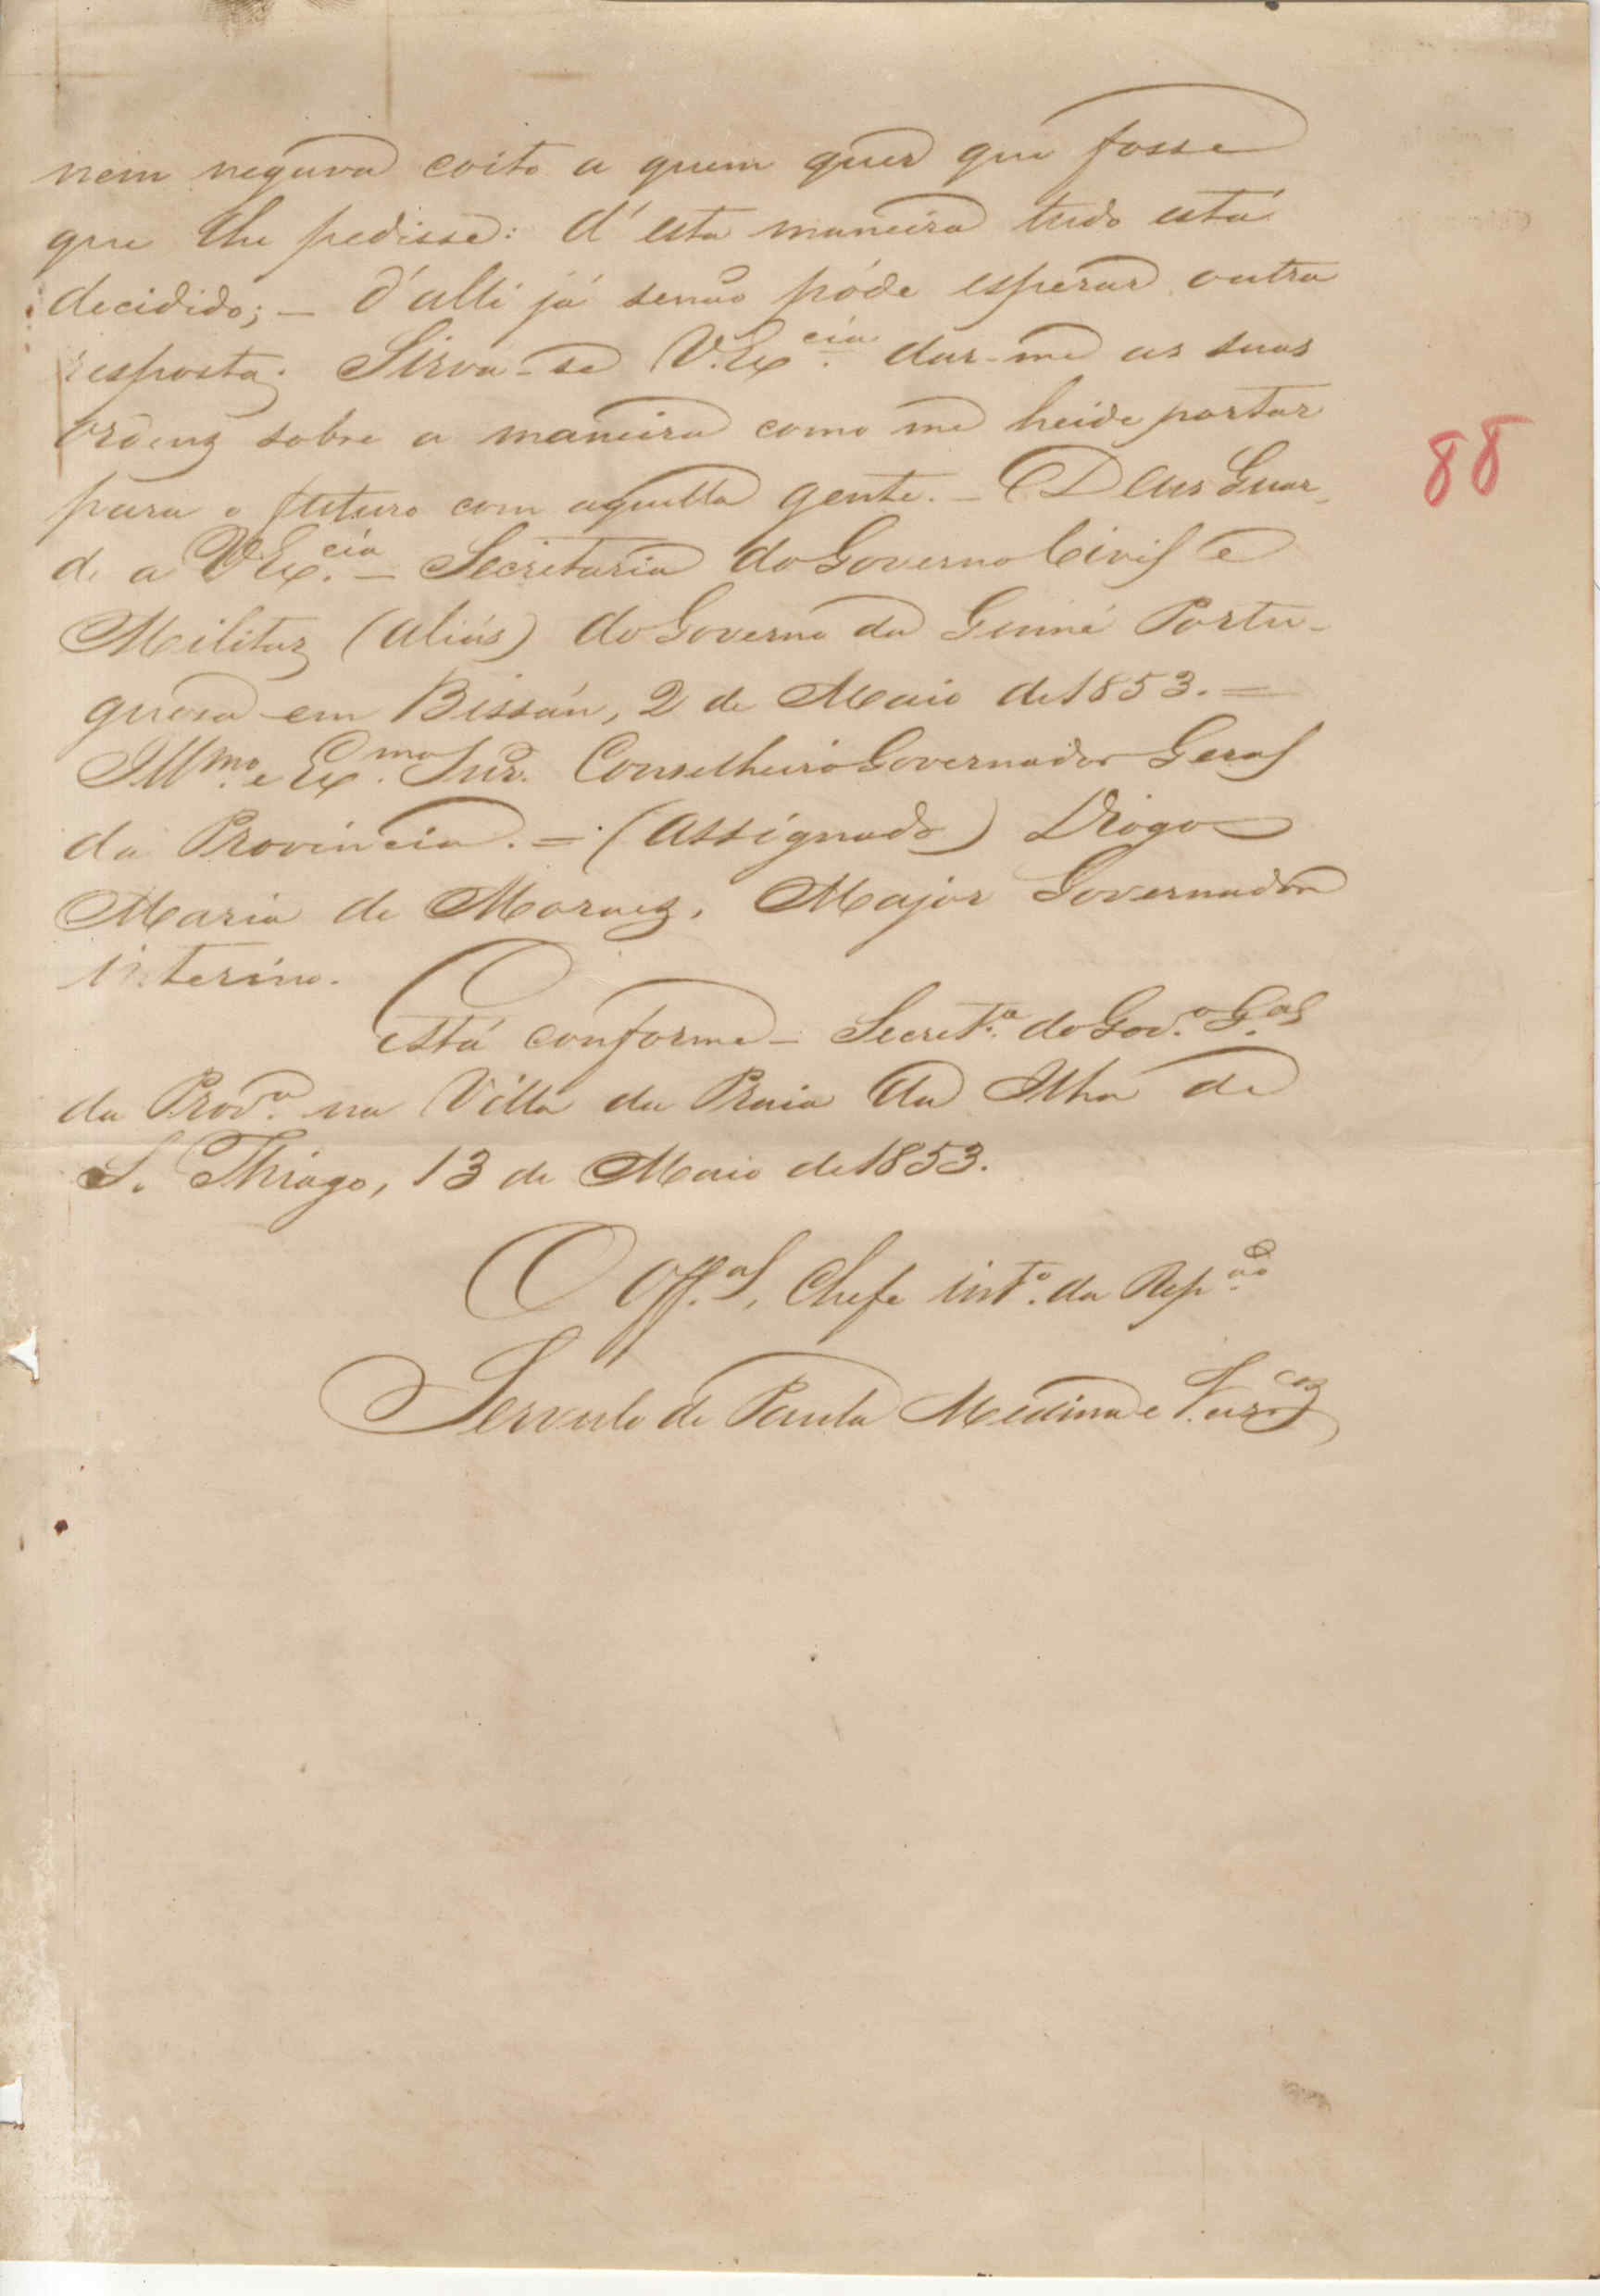 nem negava coito a quem quer que fosse
que lhe pedisse: d'esta maneira tudo está
decidido; — d'alli já senão póde esperar outra
resposta. Sirva-se V. Ex.cia dar-me as suas
ordens sobre a maneira como me heide portar
88
para o futuro com aquella gente. — Deus Guar-
de a V. Ex.cia — Secretaria do Governo Civil e
Militar (aliás) do Governo da Guiné Portu-
gueza em Bissáu, 2 de Maio de 1853. =
Illmo. e Exmo. Snr. Conselheiro Governador Geral
da Provincia. = (Assignado) Diogo
Maria de Moraes, Major Governador
interino.
Está conforme — Secret.ª do Gov.º G.al
da Prov.ª na Villa da Praia da Ilha de
S. Thiago, 13 de Maio de 1853.
O Off.al, Chefe int.º da Rep.ão
Servulo de Paula Medina e Vas.cos